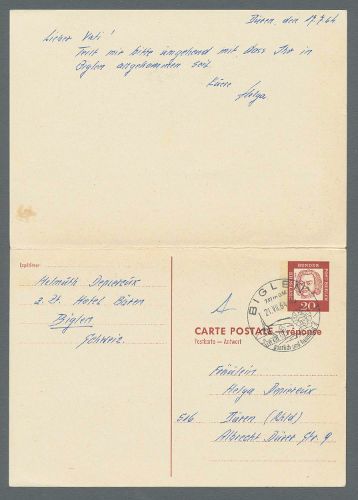 Düren, den 17.7.64
Lieber Vati!
Teilt mir bitte umgehend mit dass Ihr in
Biglen angekommen seit.
Eure
Helga
Expéditeur
Helmuth Depiereux
z. Zt. Hotel Bären
Biglen
Schweiz
DEUTSCHE BUNDESPOST BERLIN
20
BIGLEN
CARTE POSTALE réponse
Postkarte — Antwort
Fräulein
Helga Depiereux
516 Düren (Rhld)
Albrecht Dürer Str. 9